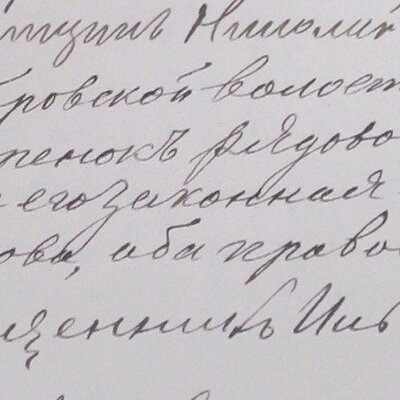 Николай
ровской волост
пенокъ рядово
его законная
ова, оба право
щенникъ Иль